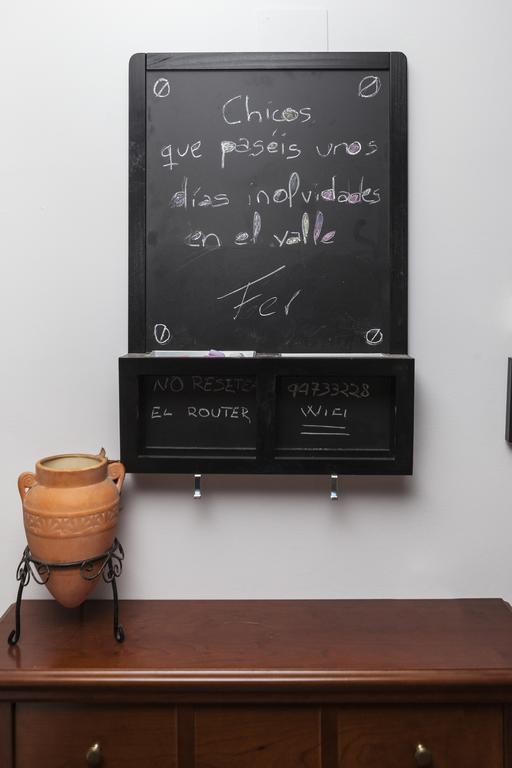 Chicos
que paséis unos
días inolvidades
en el valle
Fer
NO RESETEA
EL ROUTER
94733228
WIFI